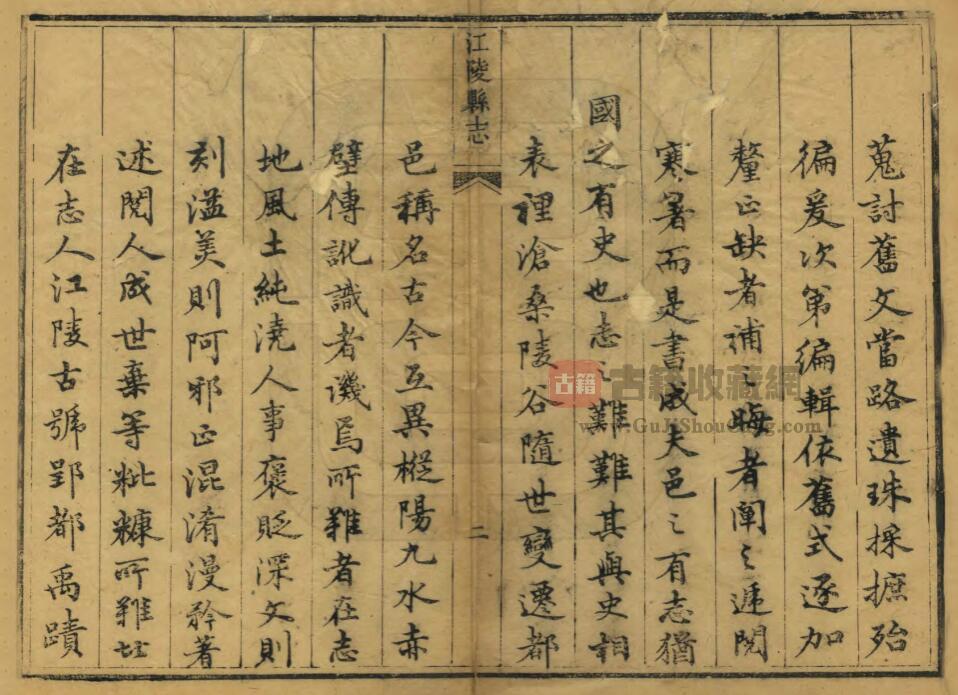 蒐討舊文當路遺珠採摭殆
徧爰次第編輯依舊式逐加
釐正缺者補之晦者闡之遞閱
寒暑而是書成夫邑之有志猶
國之有史也志之難難其與史相
表裡滄桑陵谷隨世變遷都
江陵縣志
二
邑稱名古今互異樅陽九水赤
壁傳訛識者譏焉所難者在志
地風土純澆人事褒貶深文則
刻溢美則阿邪正混淆漫矜著
述閱人成世棄等粃糠所難
在志人江陵古號郢都禹蹟
古籍
古籍收藏網
www.GuJiShouCang.com